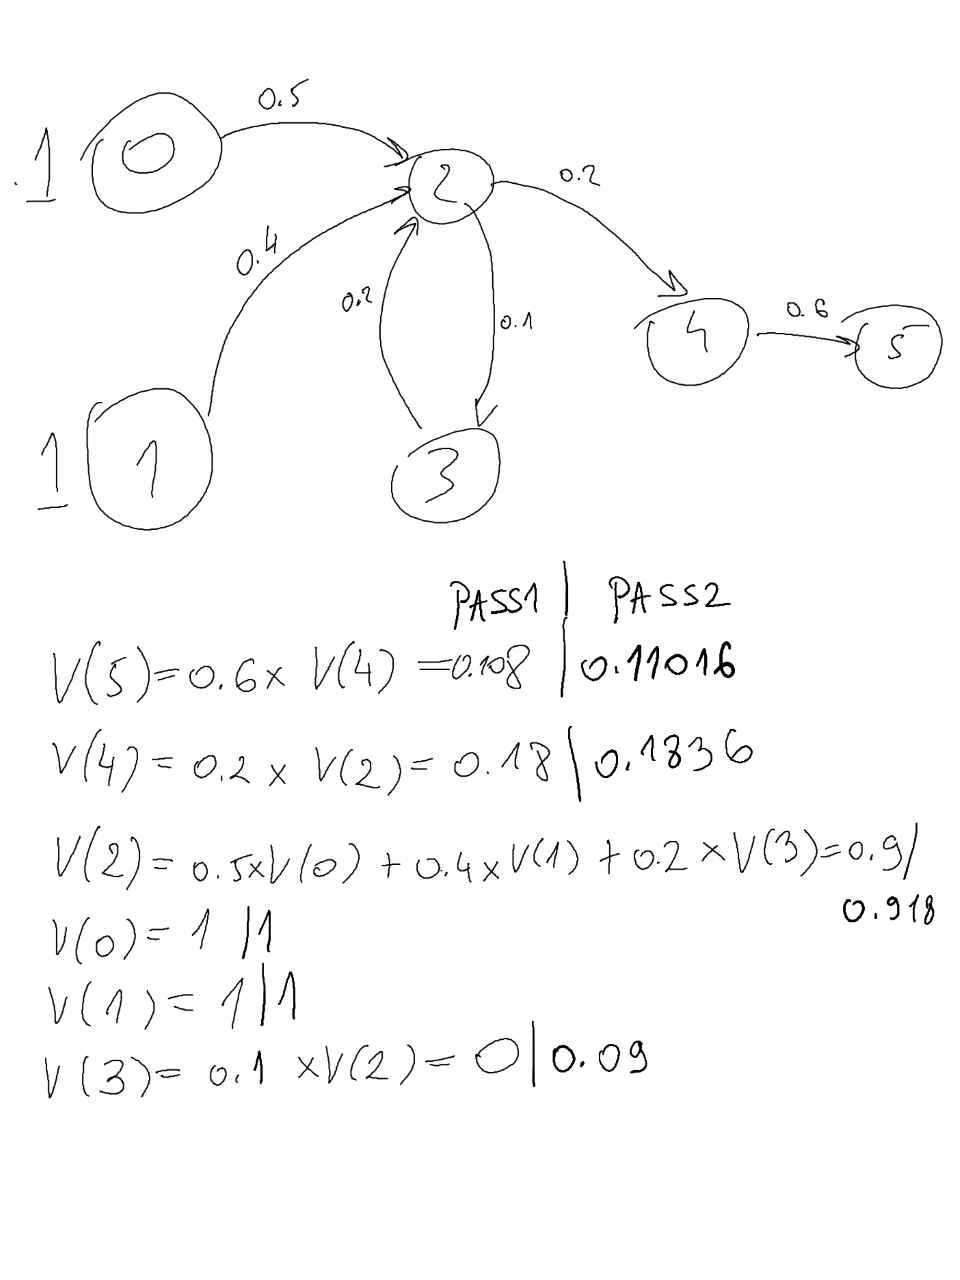 0.5
1 0
2
0.2
0.4
0.2
0.1
4
0.6
5
1 1
3
PASS1 | PASS2
V(5)=0.6x V(4) =0.108 | 0.11016
V(4)= 0.2 x V(2)= 0.18 | 0.1836
V(2)= 0.5xV(0) + 0.4xV(1) + 0.2 xV(3)=0.9/
0.918
V(0)= 1 |1
V(1)= 1|1
V(3)= 0.1 xV(2)= 0|0.09